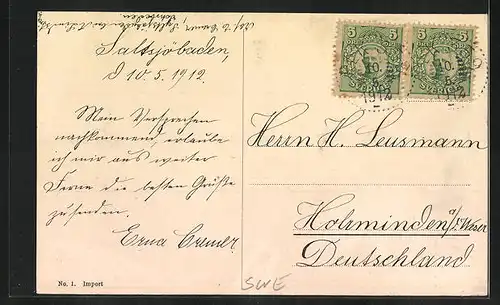 Saltsjöbaden,
d 10. 5. 1912.
Mein Versprechen
nachkommend, erlaube
ich mir aus weiter
Ferne die besten Grüße
zu senden.
Erna Cremer
No. 1. Import
5 5
1912
Herrn H. Leusmann
Holzminden a/d. Weser
Deutschland
SWE